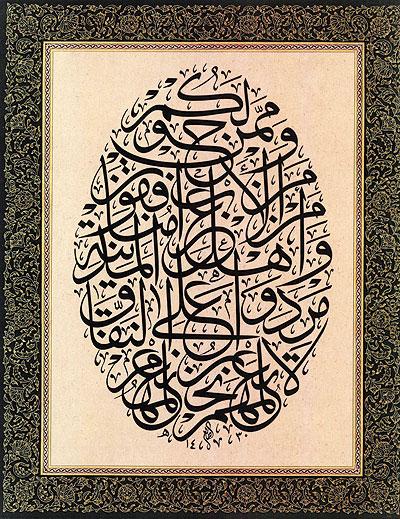 وَمِمَّنْ حَوْلَكُمْ
مِنَ الْأَعْرَابِ مُنَافِقُونَ
وَمِنْ أَهْلِ الْمَدِينَةِ
مَرَدُوا عَلَى النِّفَاقِ
لَا تَعْلَمُهُمْ نَحْنُ نَعْلَمُهُمْ